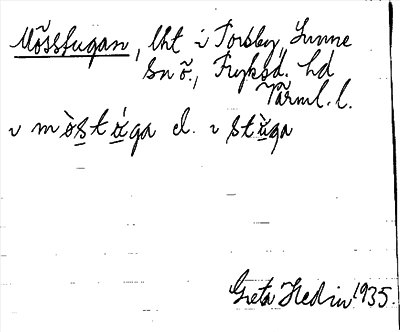 Mõsstugan, lht i Torsby, Sunne
sn õ., Fryksd. hd
Värml. l.
i mòstǿga el. i stùga
Greta Hedin 1935.